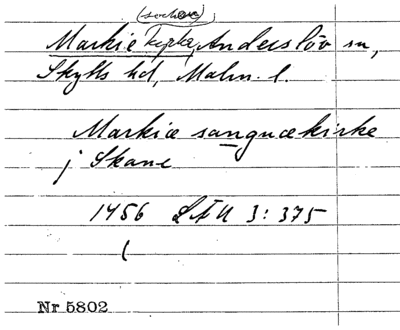 (sochne)
Markie kyrka, Anderslöv sn,
Skytts hd, Malm. l.
Markiæ sangnækirke
j Skane
1456 LÄU 3: 375
(
Nr 5802